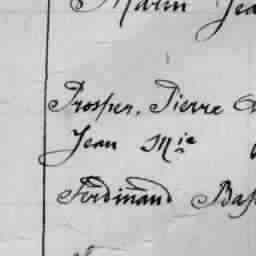 Marin Jea
Prosper, Pierre
Jean Mie
Ferdinand Bap